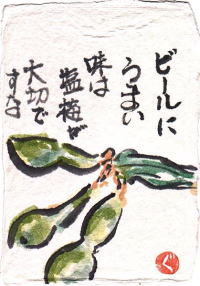 ビールに
うまい
味は
塩梅が
大切で
すな
ぐ